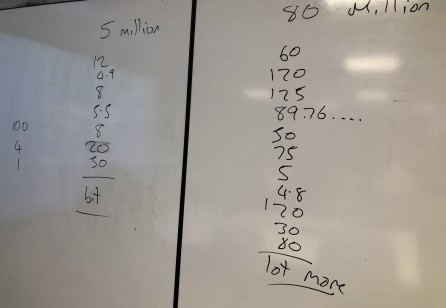 5 million
12
4.9
8
5.5
100 8
4 20
1 50
bit
80 Million
60
120
125
89.76....
50
75
5
4.8
120
30
80
lot more